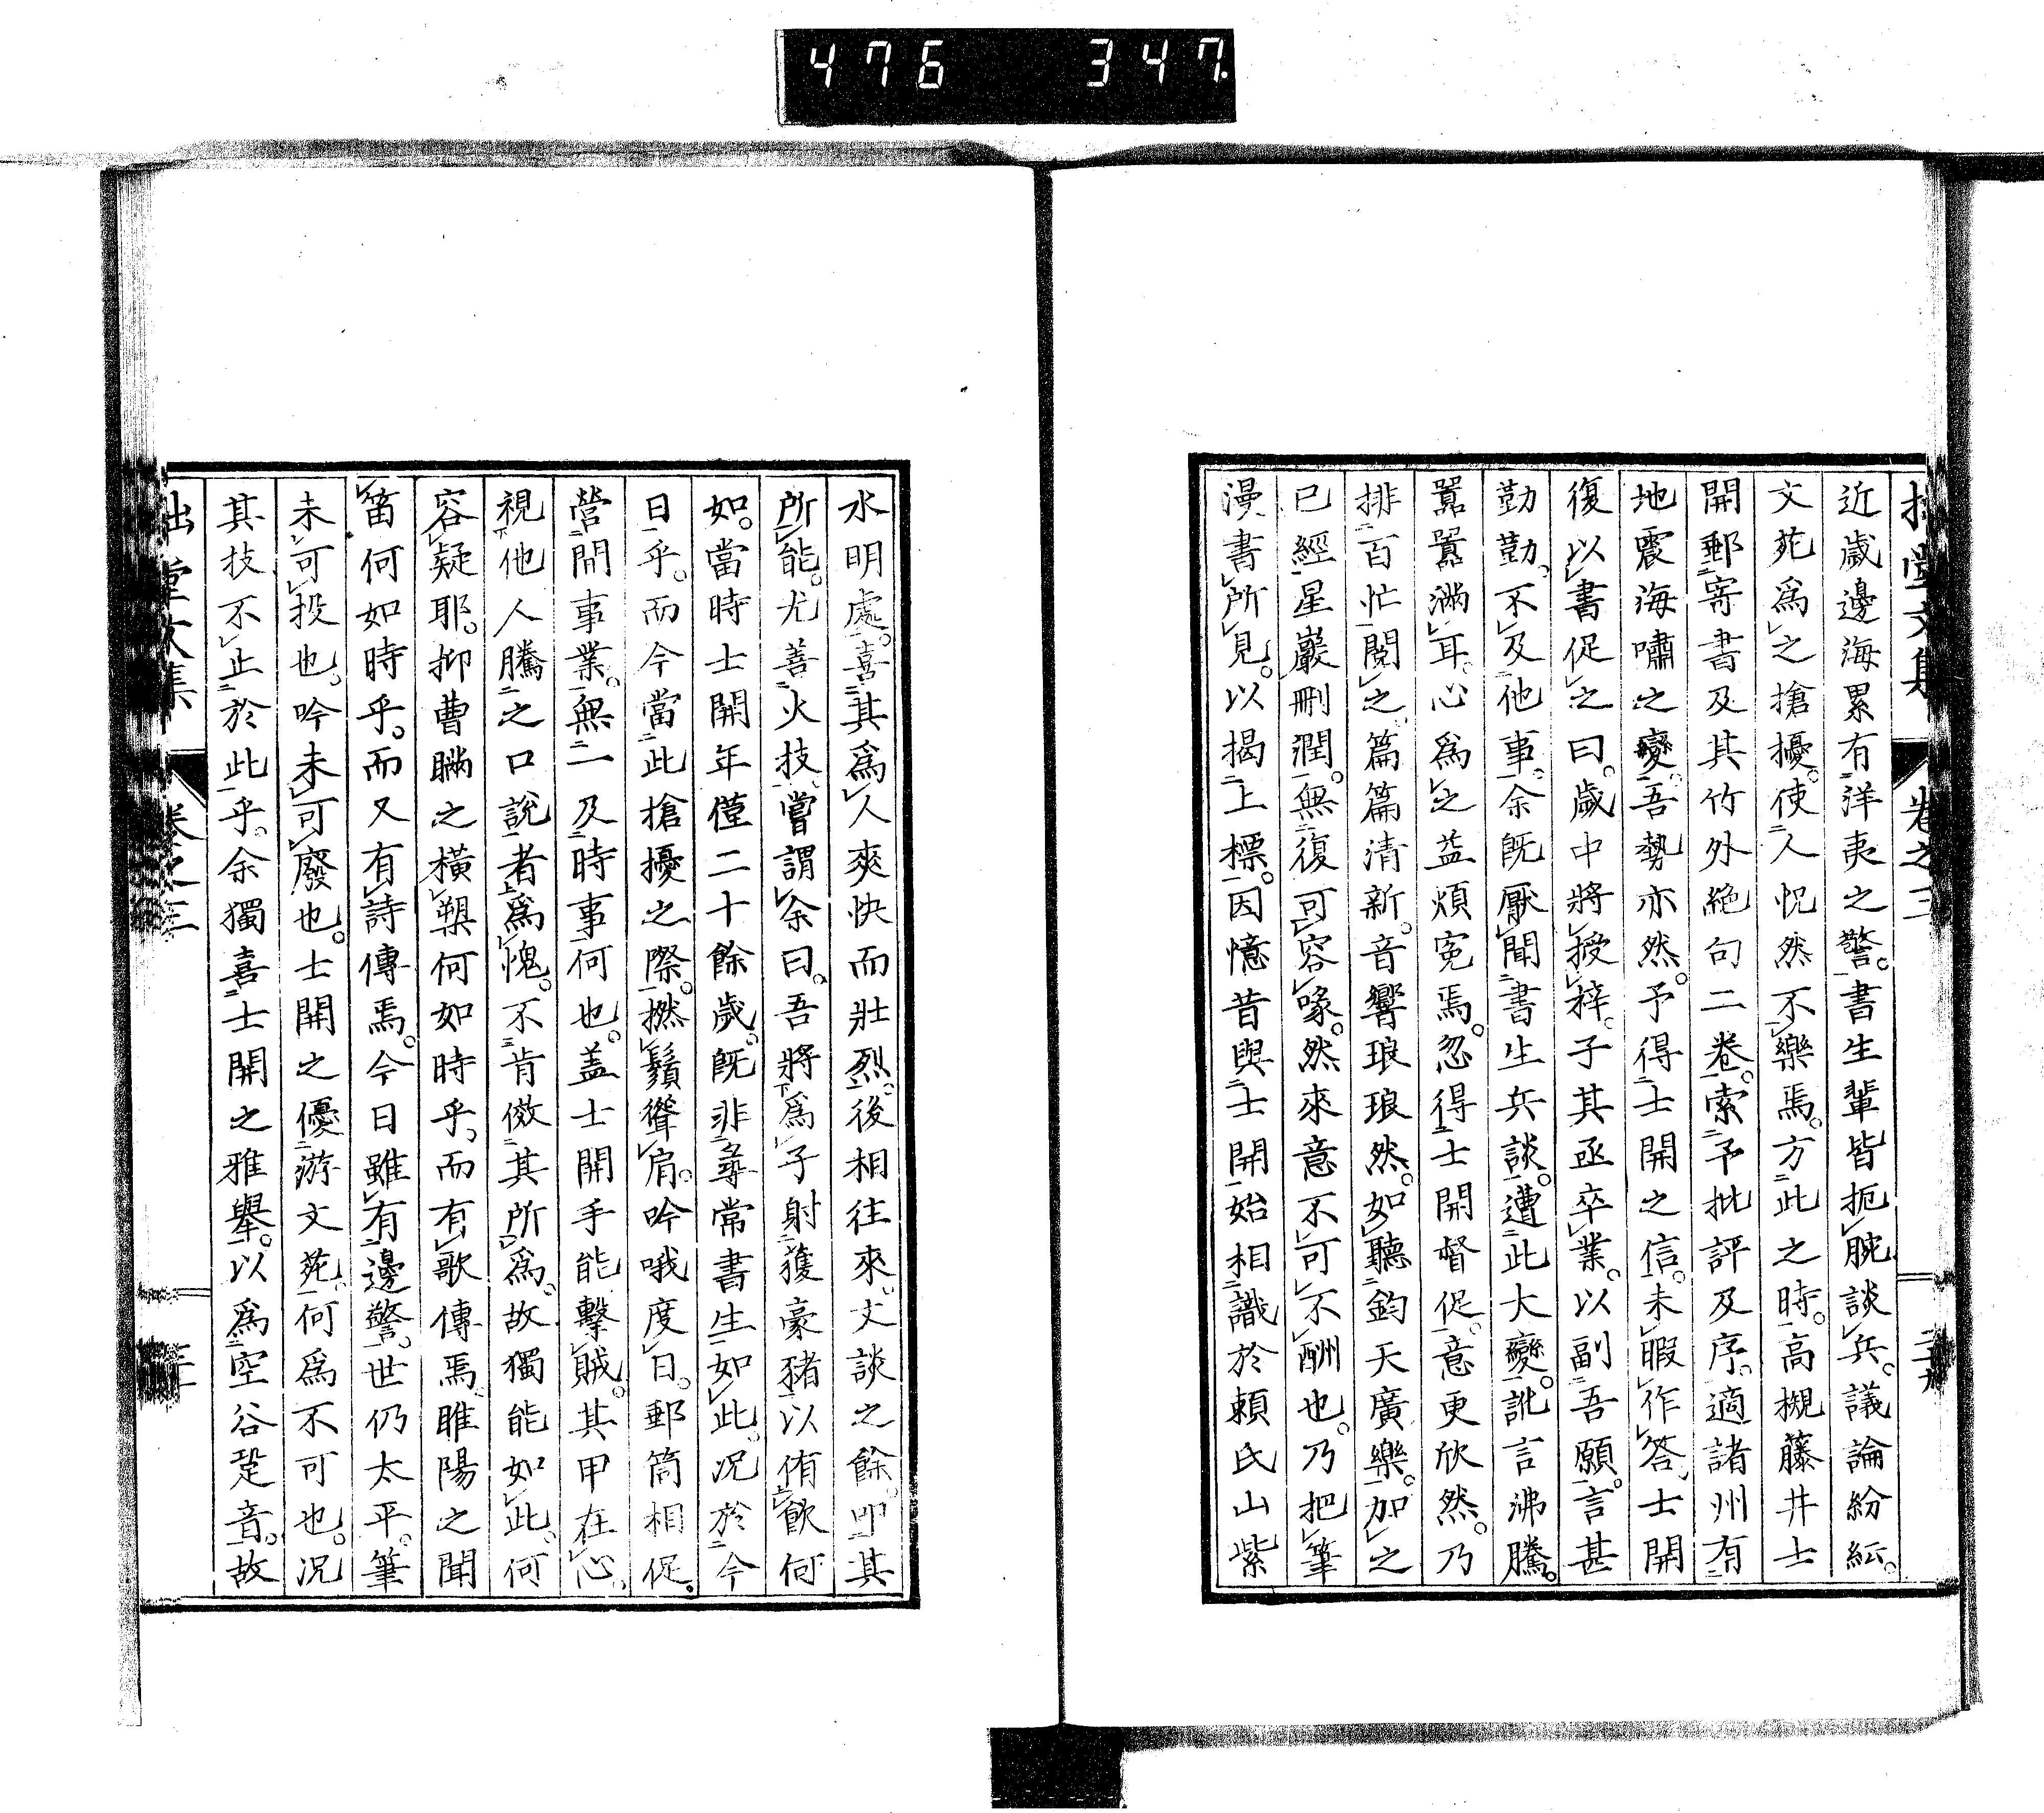 476 347
拙堂文集 卷之三
近歲邊海累有洋夷之警。書生輩皆扼腕談兵。議論紛紜。
文苑爲之搶擾。使人怳然不樂焉。方此之時。高槻藤井士
開郵寄書及其竹外絕句二卷。索予批評及序。適諸州有
地震海嘯之變。吾勢亦然。予得士開之信。未暇作答。士開
復以書促之曰。歲中將授梓。子其亟卒業。以副吾願。言甚
勤勤。不及他事。余旣厭聞書生兵談。遭此大變。訛言沸騰。
囂囂滿耳。心爲之益煩寃焉。忽得士開督促。意更欣然。乃
排百忙閱之。篇篇清新。音響琅琅然。如聽鈞天廣樂。加之
已經星巖刪潤。無復可容喙。然來意不可不酬也。乃把筆
漫書所見。以揭上標。因憶昔與士開始相識於賴氏山紫
水明處。喜其爲人爽快而壯烈。後相往來。文談之餘。叩其
所能。尤善火技。嘗謂余曰。吾將爲子射獲豪豬以侑飮何
如。當時士開年僅二十餘歲。旣非尋常書生如此。況於今
日乎。而今當此搶擾之際。撚鬚聳肩。吟哦度日。郵筒相促。
營間事業。無一及時事何也。盖士開手能擊賊。其甲在心。
視他人騰之口說者爲愧。不肯傚其所爲。故獨能如此。何
容疑耶。抑曹瞞之橫槊何如時乎。而有歌傳焉。睢陽之聞
笛何如時乎。而又有詩傳焉。今日雖有邊警。世仍太平。筆
未可投也。吟未可廢也。士開之優游文苑。何爲不可也。況
其技不止於此乎。余獨喜士開之雅舉。以爲空谷跫音。故
拙堂文集 卷之三